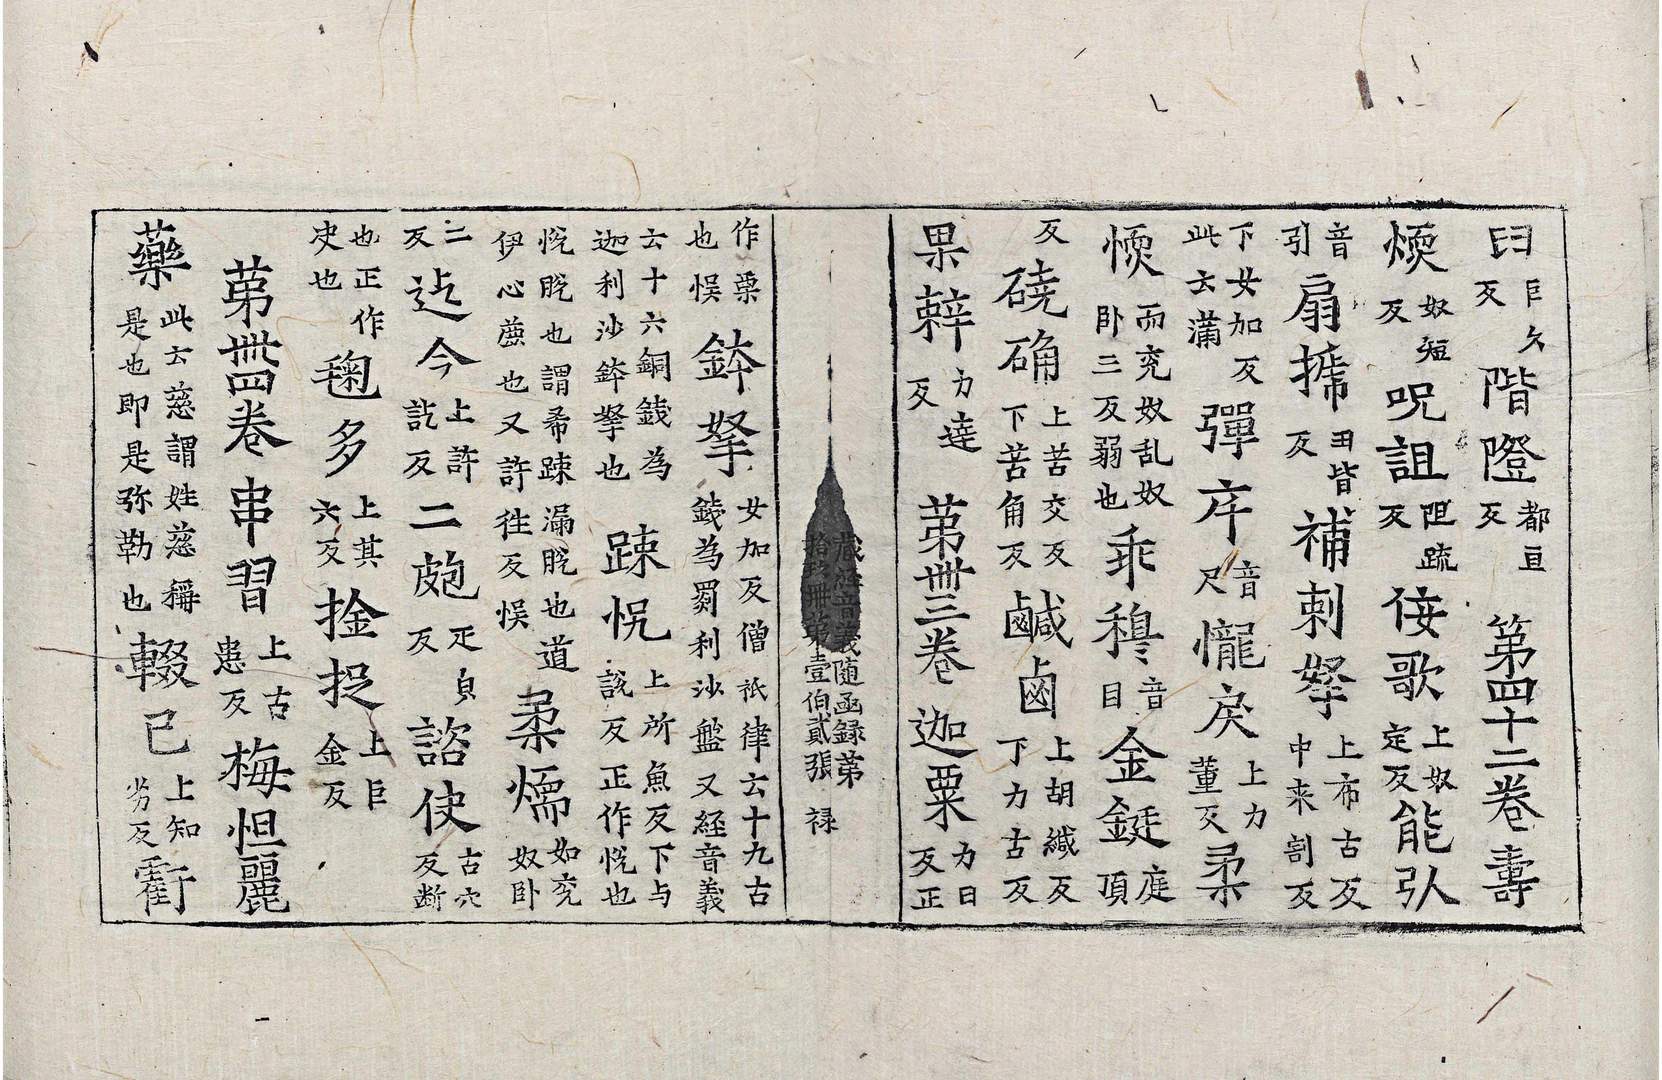 臼巨久反階隥都亘反第四十二卷壽
煗奴短反呪詛阻疏反侫歌上奴定反能㧈
音引扇㨿田皆反補刺拏上布古反中来割反
下女加反此云滿彈㡿音尺㦕戾上力董反柔
愞而兖奴乱奴卧三反弱也乖穆音目金鋌庭頂
反磽确上苦交反下苦角反鹹鹵上胡緘反下力古反
果䔾力達反第卌三卷迦粟力日反正
藏經音義随函録第拾玖冊第壹伯貳張 禄
作栗也悮鉢拏女加反僧祇律云十九古錢為蜀利沙盤又經音義
云十六銅錢為迦利沙鉢拏也踈悦上所魚反下与説反正作悅也
悅脫也謂希踈漏脫也道伊心䕌也又許往反悮柔煗如兖奴卧
二反迄今上許訖反二皰疋皃反諮使古穴反断
也正作史也毱多上其六反捦捉上巨金反
第卌四卷串習上古患反梅怛麗
藥此云慈謂姓慈稱是也即是弥勒也輟已上知劣反䨥